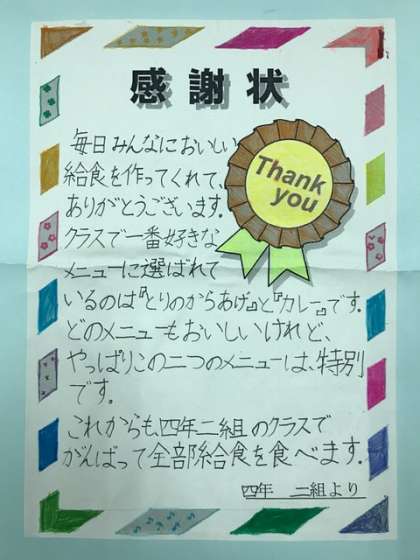 感謝状
毎日みんなにおいしい
給食を作ってくれて、
ありがとうございます。
クラスで一番好きな
メニューに選ばれて
いるのは『とりのからあげ』と『カレー』です。
どのメニューもおいしいけれど、
やっぱりこの二つのメニューは、特別
です。
これからも四年二組のクラスで
がんばって全部給食を食べます。
四年　二組より
Thank
you